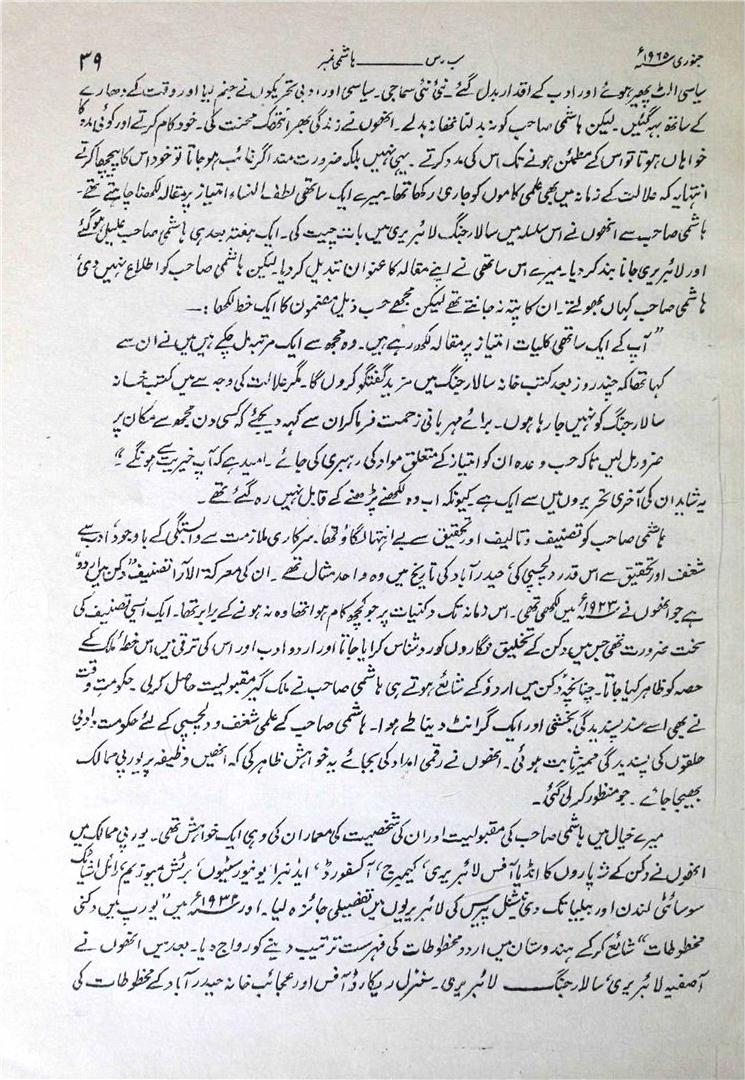 جنوری ۱۹۶۵ء سب رس ــــــــ ہاشمی نمبر ۳۹
سیاسی الٹ پھیر ہوئے اور ادب کے اقدار بدل گئے۔ نئی نئی سماجی۔ سیاسی اور ادبی تحریکوں نے جنم لیا اور وقت کے دھارے
کے ساتھ بہہ گئیں۔ لیکن ہاشمی صاحب کو نہ بدلنا تھا نہ بدلے۔ انھوں نے زندگی بھر انتھک محنت کی۔ خود کام کرتے اور کوئی مدد کا
خواہاں ہوتا تو اس کے مطمئن ہونے تک اس کی مدد کرتے۔ یہی نہیں بلکہ ضرورت مند اگر غائب ہو جاتا تو خود اس کا پیچھا کرتے
انتہا یہ کہ علالت کے زمانہ میں بھی علمی کاموں کو جاری رکھا تھا۔ میرے ایک ساتھی لطف النساء امتیاز پر مقالہ لکھنا چاہتے تھے۔
ہاشمی صاحب سے انھوں نے اس سلسلہ میں سالار جنگ لائبریری میں بات چیت کی۔ ایک ہفتہ بعد ہی ہاشمی صاحب علیل ہو گئے
اور لائبریری جانا بند کر دیا۔ میرے اس ساتھی نے اپنے مقالہ کا عنوان تبدیل کر دیا لیکن ہاشمی صاحب کو اطلاع نہیں دی
ہاشمی صاحب کہاں بھولتے۔ ان کا پتہ نہ جانتے تھے لیکن مجھے حسب ذیل مضمون کا ایک خط لکھا :۔
”آپ کے ایک ساتھی کلیات امتیاز پر مقالہ لکھ رہے ہیں۔ وہ مجھ سے ایک مرتبہ مل چکے ہیں میں نے ان سے
کہا تھا کہ چند روز بعد کتب خانہ سالار جنگ میں مزید گفتگو کروں گا۔ مگر علالت کی وجہ سے میں کتب خانہ
سالار جنگ کو نہیں جا رہا ہوں۔ برائے مہربانی زحمت فرما کر ان سے کہہ دیجئے کہ کسی دن مجھ سے مکان پر
ضرور مل لیں تاکہ حسب وعدہ ان کو امتیاز کے متعلق مواد کی رہبری کی جائے۔ امید ہے کہ آپ خیریت سے ہونگے۔“
یہ شاید ان کی آخری تحریروں میں سے ایک ہے۔ کیونکہ اب وہ لکھنے پڑھنے کے قابل نہیں رہ گئے تھے۔
ہاشمی صاحب کو تصنیف و تالیف اور تحقیق سے بے انتہا لگاؤ تھا۔ سرکاری ملازمت سے وابستگی کے باوجود ادب سے
شغف اور تحقیق سے اس قدر دلچسپی کی، حیدرآباد کی تاریخ میں وہ واحد مثال تھے۔ ان کی معرکۃ الآرا تصنیف ”دکن میں اردو“
ہے جو انھوں نے ۱۹۲۳ء میں لکھی تھی۔ اس زمانہ تک دکنیات پر جو کچھ کام ہوا تھا وہ نہ ہونے کے برابر تھا۔ ایک ایسی تصنیف کی
سخت ضرورت تھی جس میں دکن کے تخلیق نگاروں کو روشناس کرایا جاتا اور اردو ادب اور اس کی ترقی میں اس خطۂ ملک کے
حصہ کو ظاہر کیا جاتا۔ چنانچہ دکن میں اردو کے شائع ہوتے ہی ہاشمی صاحب نے ملک گیر مقبولیت حاصل کر لی۔ حکومتِ وقت
نے بھی اسے سند پسندیدگی بخشی اور ایک گرانٹ دینا طے ہوا۔ ہاشمی صاحب کے علمی شغف و دلچسپی کے لئے حکومت و ادبی
حلقوں کی پسندیدگی مہمیز ثابت ہوئی۔ انھوں نے رقمی امداد کی بجائے یہ خواہش ظاہر کی کہ انھیں وظیفہ پر یورپی ممالک
بھیجا جائے۔ جو منظور کر لی گئی۔
میرے خیال میں ہاشمی صاحب کی مقبولیت اور ان کی شخصیت کی معمار ان کی وہی ایک خواہش تھی۔ یورپی ممالک میں
انھوں نے دکن کے شہ پاروں کا انڈیا آفس لائبریری، کیمبرج، آکسفورڈ، ایڈنبرا یونیورسٹیوں، برٹش میوزیم، رائل ایشیاٹک
سوسائٹی لندن اور ببلیا تک دی نیشنل پیرس کی لائبریریوں میں تفصیلی جائزہ لیا۔ اور ۱۹۳۲ء میں ”یورپ میں دکنی
مخطوطات“ شائع کر کے ہندوستان میں اردو مخطوطات کی فہرست ترتیب دینے کو رواج دیا۔ بعد میں انھوں نے
آصفیہ لائبریری، سالار جنگ ــــــ لائبریری۔ سنٹرل ریکارڈ آفس اور عجائب خانہ حیدرآباد کے مخطوطات کی